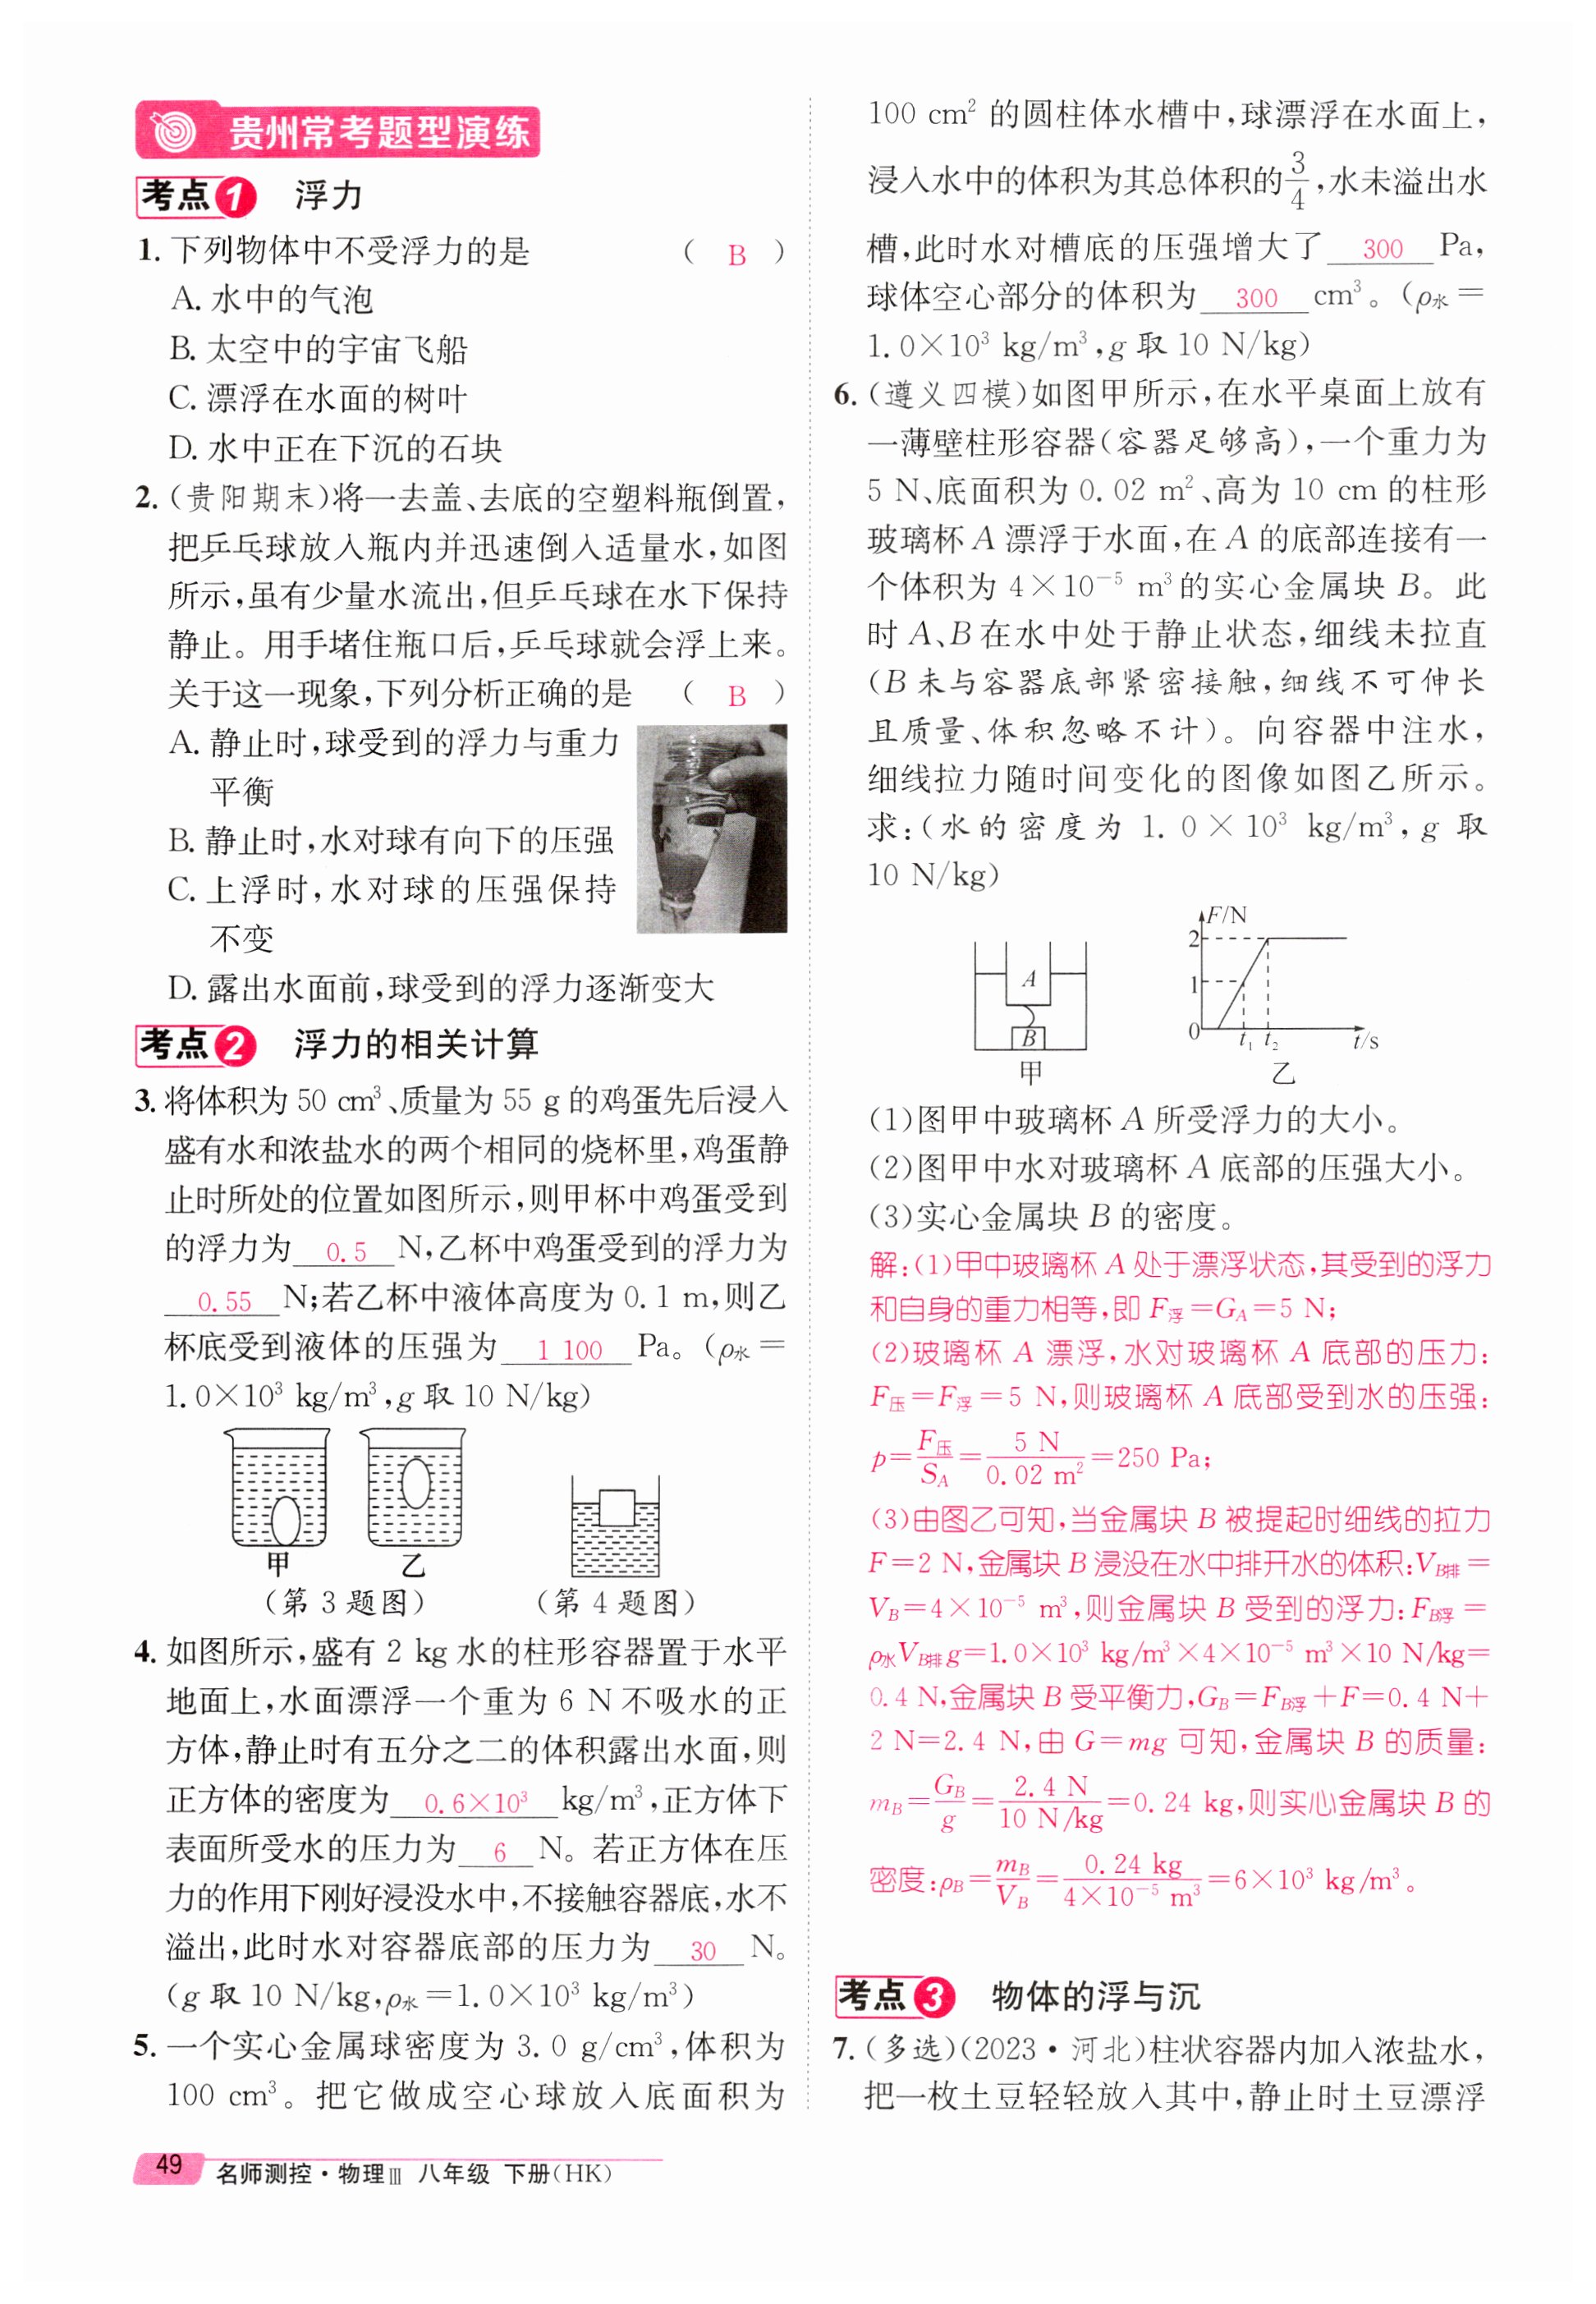 贵州常考题型演练
考点1 浮力
1. 下列物体中不受浮力的是 ( B )
A. 水中的气泡
B. 太空中的宇宙飞船
C. 漂浮在水面的树叶
D. 水中正在下沉的石块
2. (贵阳期末)将一去盖、去底的空塑料瓶倒置,
把乒乓球放入瓶内并迅速倒入适量水,如图
所示,虽有少量水流出,但乒乓球在水下保持
静止。用手堵住瓶口后,乒乓球就会浮上来。
关于这一现象,下列分析正确的是 ( B )
A. 静止时,球受到的浮力与重力
平衡
B. 静止时,水对球有向下的压强
C. 上浮时,水对球的压强保持
不变
D. 露出水面前,球受到的浮力逐渐变大
考点2 浮力的相关计算
3. 将体积为 50 cm³、质量为 55 g 的鸡蛋先后浸入
盛有水和浓盐水的两个相同的烧杯里,鸡蛋静
止时所处的位置如图所示,则甲杯中鸡蛋受到
的浮力为 0.5 N,乙杯中鸡蛋受到的浮力为
0.55 N;若乙杯中液体高度为 0.1 m,则乙
杯底受到液体的压强为 1 100 Pa。(ρ水=
1.0×10³ kg/m³,g 取 10 N/kg)
甲 乙
(第 3 题图) (第 4 题图)
4. 如图所示,盛有 2 kg 水的柱形容器置于水平
地面上,水面漂浮一个重为 6 N 不吸水的正
方体,静止时有五分之二的体积露出水面,则
正方体的密度为 0.6×10³ kg/m³,正方体下
表面所受水的压力为 6 N。若正方体在压
力的作用下刚好浸没水中,不接触容器底,水不
溢出,此时水对容器底部的压力为 30 N。
(g 取 10 N/kg,ρ水=1.0×10³ kg/m³)
5. 一个实心金属球密度为 3.0 g/cm³,体积为
100 cm³。把它做成空心球放入底面积为
100 cm² 的圆柱体水槽中,球漂浮在水面上,
浸入水中的体积为其总体积的3/4,水未溢出水
槽,此时水对槽底的压强增大了 300 Pa,
球体空心部分的体积为 300 cm³。(ρ水=
1.0×10³ kg/m³,g 取 10 N/kg)
6. (遵义四模)如图甲所示,在水平桌面上放有
一薄壁柱形容器(容器足够高),一个重力为
5 N、底面积为 0.02 m²、高为 10 cm 的柱形
玻璃杯 A 漂浮于水面,在 A 的底部连接有一
个体积为 4×10⁻⁵ m³的实心金属块 B。此
时 A、B 在水中处于静止状态,细线未拉直
(B 未与容器底部紧密接触,细线不可伸长
且质量、体积忽略不计)。向容器中注水,
细线拉力随时间变化的图像如图乙所示。
求:(水的密度为 1.0×10³ kg/m³,g 取
10 N/kg)
A
B
甲
F/N
2
1
0 t₁ t₂ t/s
乙
(1)图甲中玻璃杯 A 所受浮力的大小。
(2)图甲中水对玻璃杯 A 底部的压强大小。
(3)实心金属块 B 的密度。
解:(1)甲中玻璃杯 A 处于漂浮状态,其受到的浮力
和自身的重力相等,即 F浮=G_A=5 N;
(2)玻璃杯 A 漂浮,水对玻璃杯 A 底部的压力:
F压=F浮=5 N,则玻璃杯 A 底部受到水的压强:
p=F压/S_A=5 N/0.02 m²=250 Pa;
(3)由图乙可知,当金属块 B 被提起时细线的拉力
F=2 N,金属块 B 浸没在水中排开水的体积:V_B排=
V_B=4×10⁻⁵ m³,则金属块 B 受到的浮力:F_B浮=
ρ水V_B排g=1.0×10³ kg/m³×4×10⁻⁵ m³×10 N/kg=
0.4 N,金属块 B 受平衡力,G_B=F_B浮+F=0.4 N+
2 N=2.4 N,由 G=mg 可知,金属块 B 的质量:
m_B=G_B/g=2.4 N/10 N/kg=0.24 kg,则实心金属块 B 的
密度:ρ_B=m_B/V_B=0.24 kg/4×10⁻⁵ m³=6×10³ kg/m³。
考点3 物体的浮与沉
7. (多选)(2023·河北)柱状容器内加入浓盐水,
把一枚土豆轻轻放入其中,静止时土豆漂浮
49 名师测控·物理Ⅲ 八年级 下册(HK)